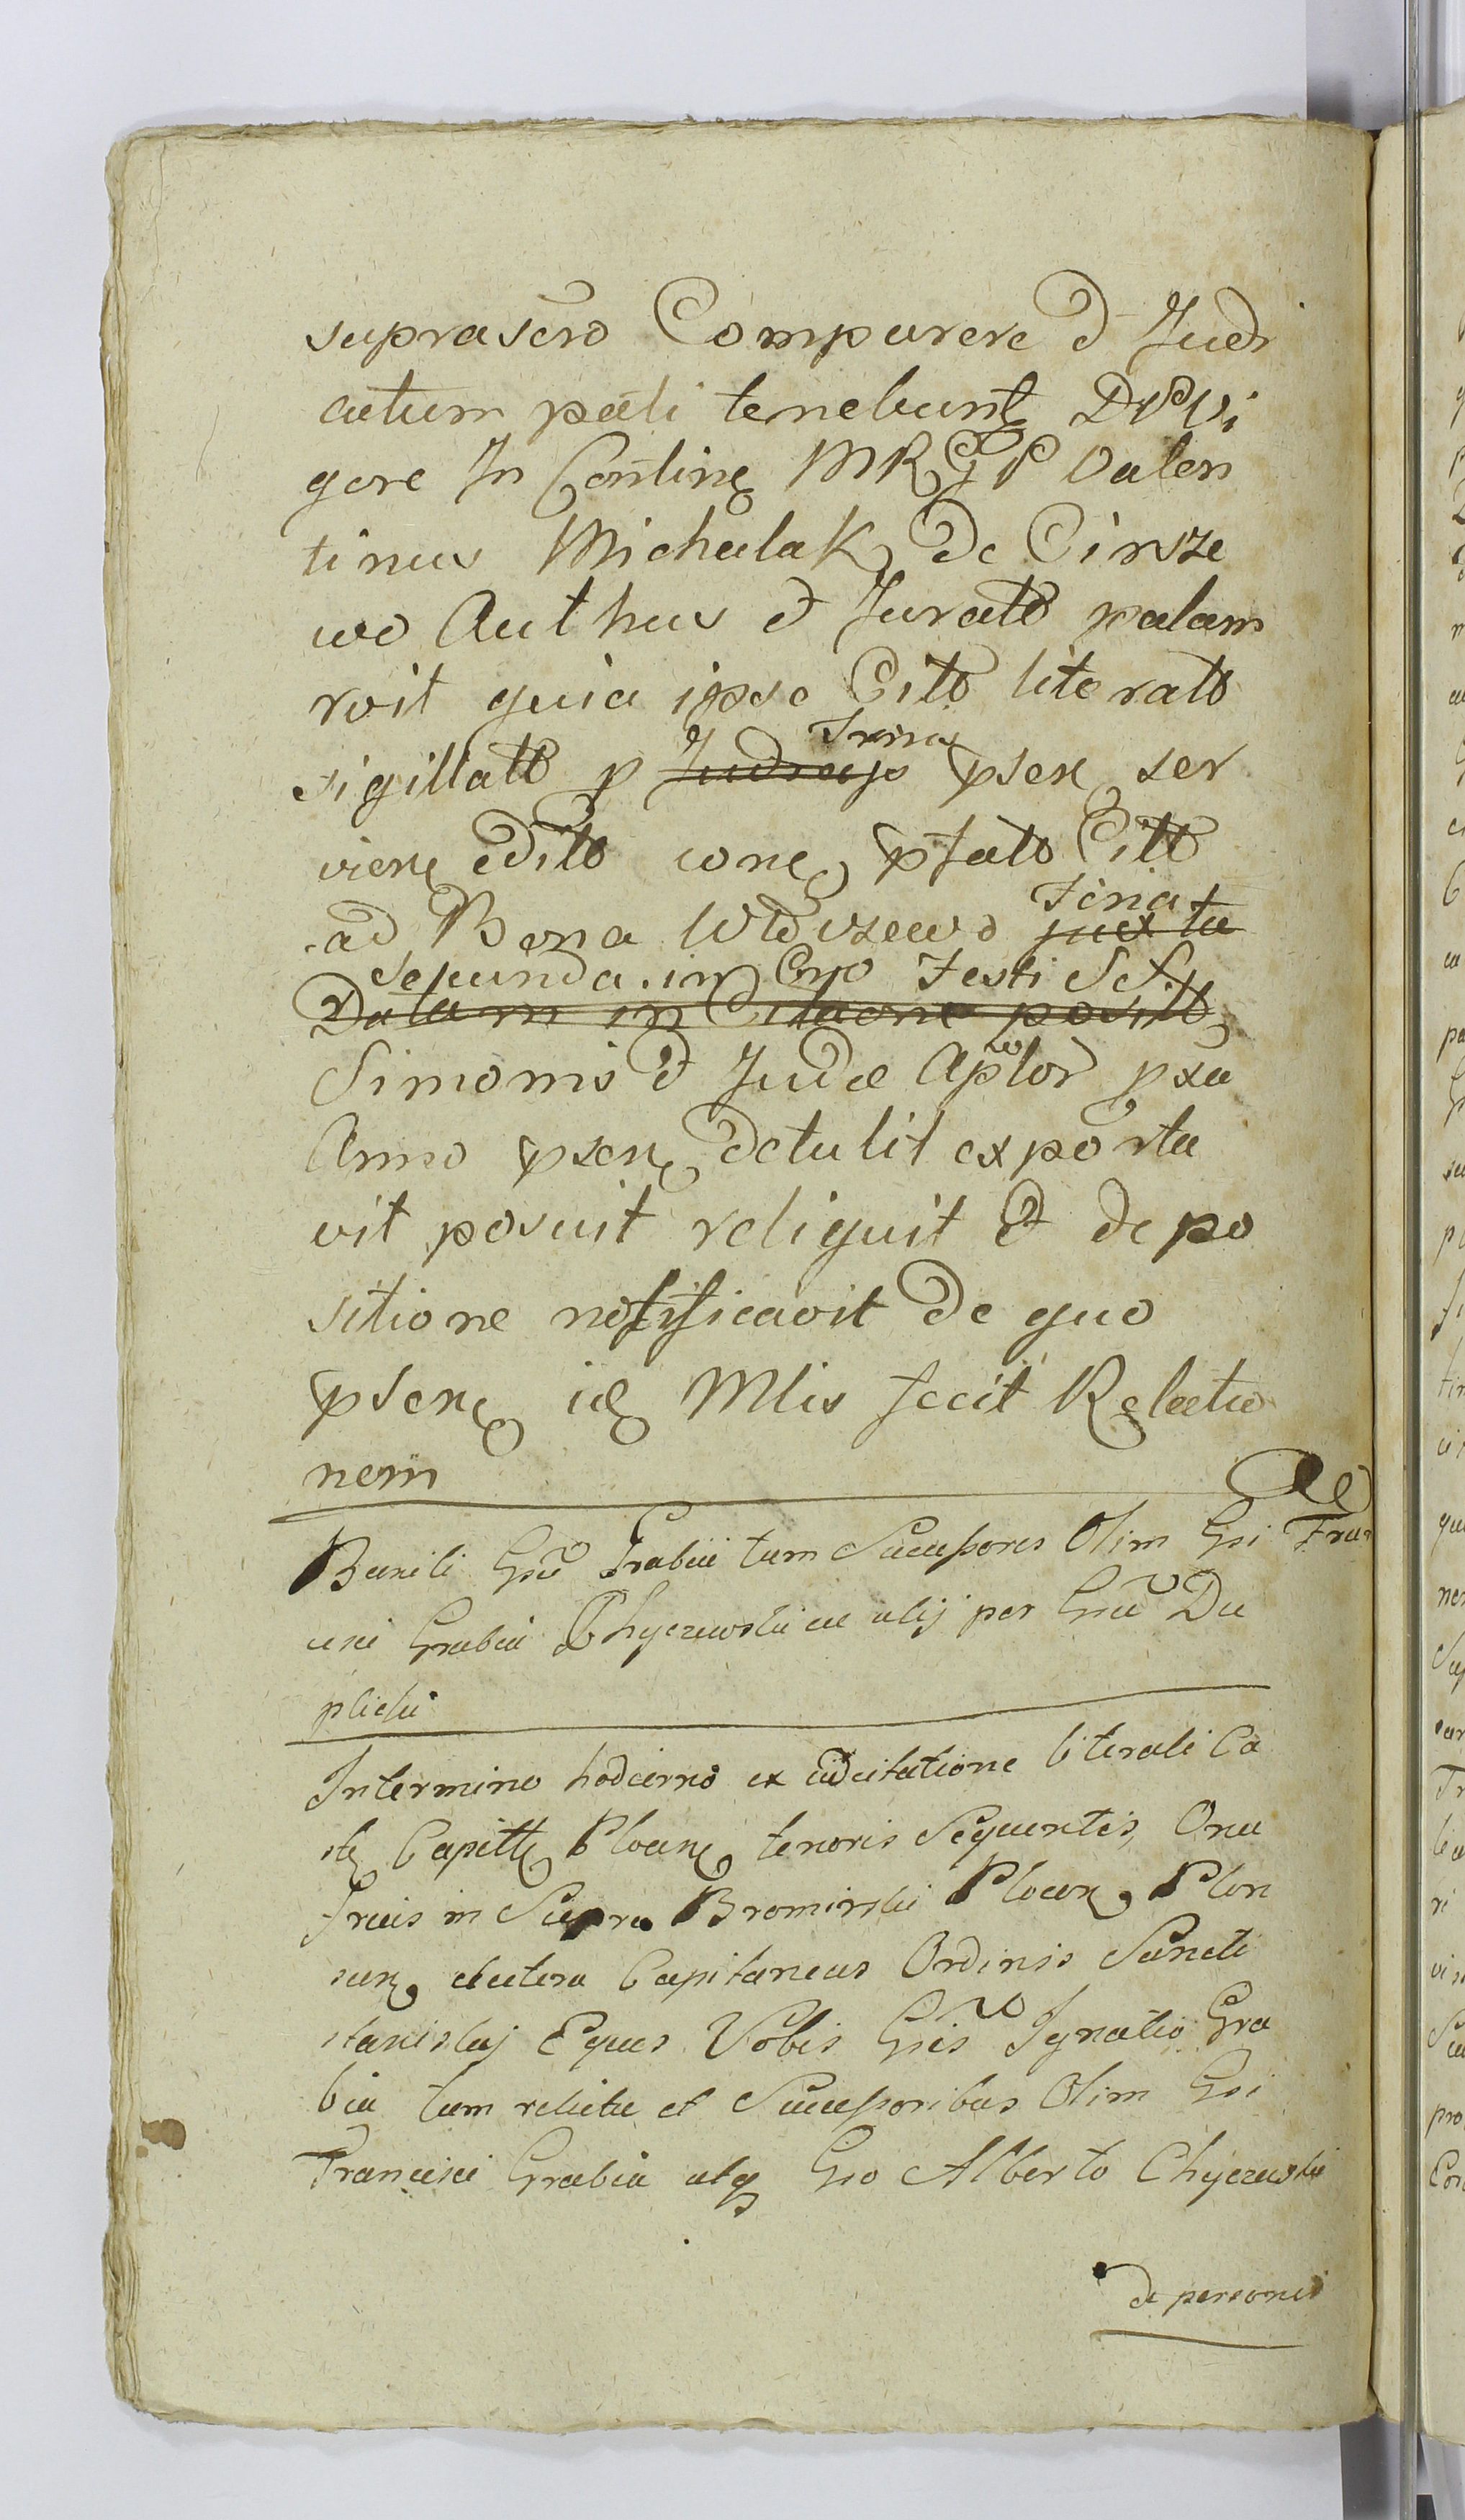 suprascro Comparere et Judi
catum pati tenebunt
gore In Contine MRGP Valen
tinus Michalak de Cirsze
wo Authus et Jurato palam
roit quia ipse Citto literatto
sigillatto p Judiciu Trina psen ser
viene editto cone pfatto Citto
ad Bona feria juxta
secunda in Cro Festi Sst
Datam in Citaone positto
Simonis et Judæ Aplor pxa
Anno psen detulit exporta
vit posuit reliquit et de po
sitione notificavit de quo
psen id Mlis fecit Relatio
nem
Grabia tum Successores Olim Gsi Fran
cisci Grabia Chyczewski ac alij per Gsu Du
plicki
In termino hodierno ex adcitatione literali Ca
Capitt Plocen tenoris Sequentis Onu
frius in Supra Bromirski Plocen Plon
scen etcetera Capitaneus Ordinis Sancti
stanislaj Eques Vobis Gsis Ignatio Gra
bia tum relictæ et Successoribus Olim Gsi
Francisci Grabia atq Gso Alberto Chyczewski
de personis